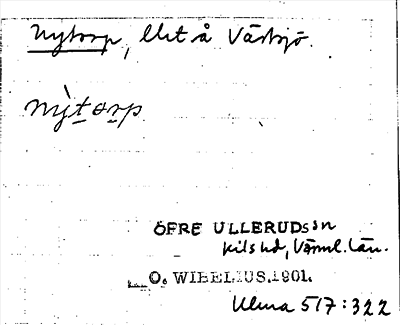 Nytorp, lht å Västsjö.
nỳtorp
ÖFRE ULLERUDssn
Kils hd, Värml. län.
O. WIBELIUS.1901.
Ulma 517:322